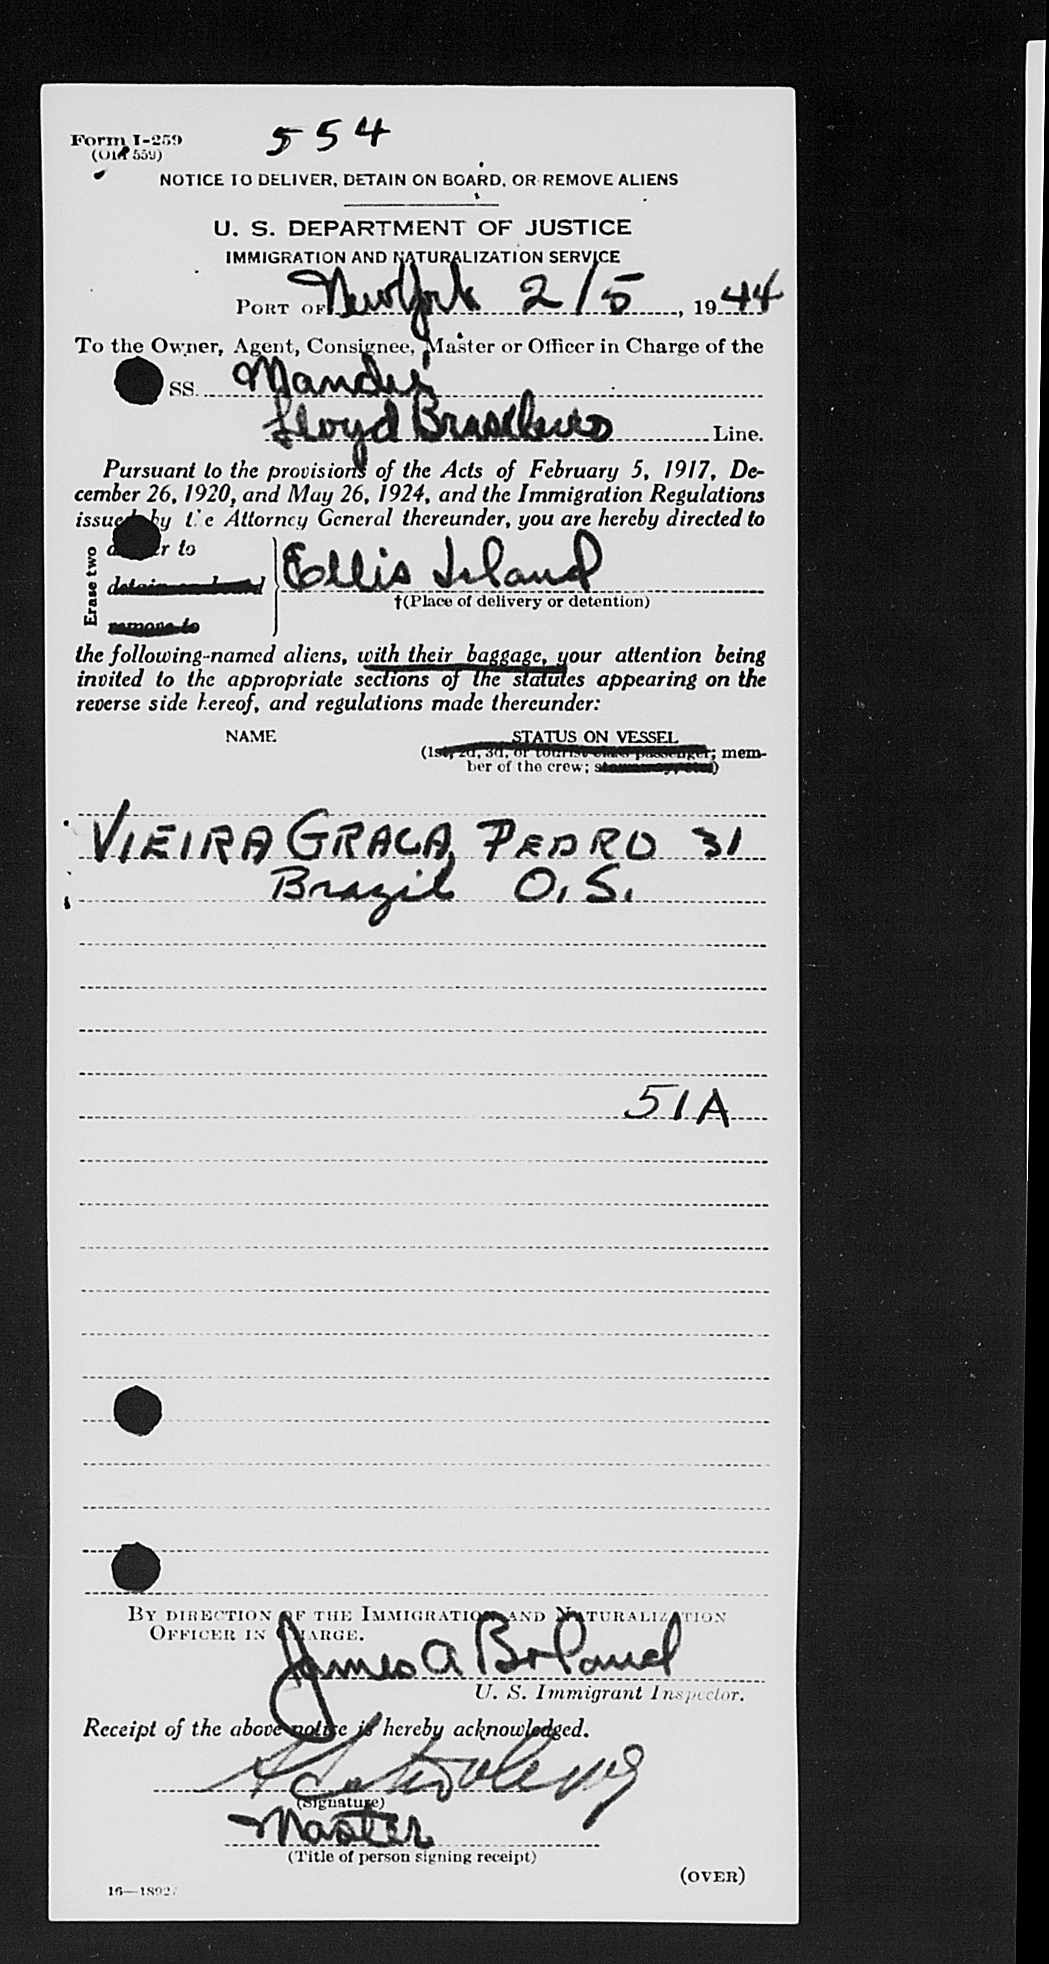 Form I-259
(Old 559)
554
NOTICE TO DELIVER, DETAIN ON BOARD, OR REMOVE ALIENS
U. S. DEPARTMENT OF JUSTICE
IMMIGRATION AND NATURALIZATION SERVICE
PORT OF New York 2/5, 1944
To the Owner, Agent, Consignee, Master or Officer in Charge of the
SS. Mandu
Lloyd Brasileiro Line.
Pursuant to the provisions of the Acts of February 5, 1917, De-
cember 26, 1920, and May 26, 1924, and the Immigration Regulations
issued by the Attorney General thereunder, you are hereby directed to
Erase two
deliver to
detain on board
remove to
Ellis Island
†(Place of delivery or detention)
the following-named aliens, with their baggage, your attention being
invited to the appropriate sections of the statutes appearing on the
reverse side hereof, and regulations made thereunder:
NAME STATUS ON VESSEL
(1st, 2d, 3d, or tourist class passenger; mem-
ber of the crew; stowaway, etc.)
VIEIRA GRACA, PEDRO 31
Brazil O.S.
51A
BY DIRECTION OF THE IMMIGRATION AND NATURALIZATION
OFFICER IN CHARGE.
James A Boland
U. S. Immigrant Inspector.
Receipt of the above notice is hereby acknowledged.
(Signature)
Master
(Title of person signing receipt)
(OVER)